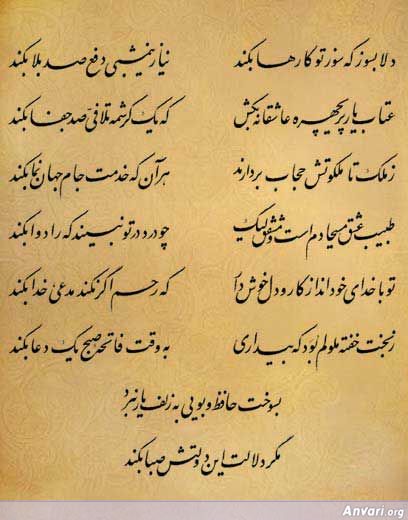 دلا بسوز که سوز تو کارها بکند نیاز نیمشبی دفع صد بلا بکند
عتاب یار پریچهره عاشقانه بکش که یک کرشمه تلافی صد جفا بکند
ز ملک تا ملکوتش حجاب بردارند هر آن که خدمت جام جهان نما بکند
طبیب عشق مسیحا دم است و مشفق لیک چو درد در تو نبیند که را دوا بکند
تو با خدای خود انداز کار و دل خوش دار که رحم اگر نکند مدعی خدا بکند
ز بخت خفته ملولم بود که بیداری به وقت فاتحه صبح یک دعا بکند
بسوخت حافظ و بویی به زلف یار نبرد
مگر دلالت این دولتش صبا بکند
Anvari.org